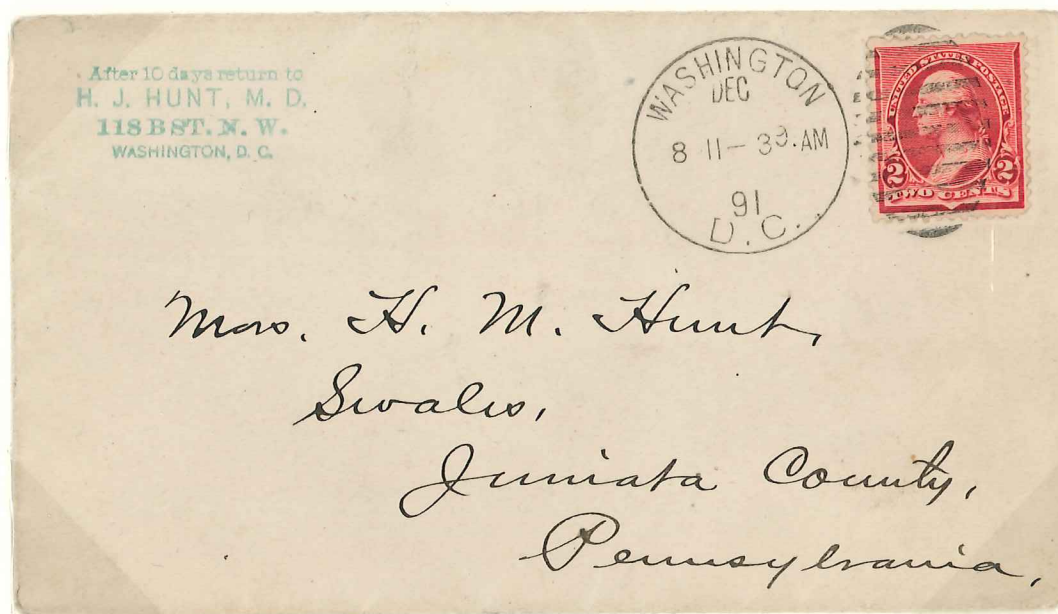 After 10 days return to
H. J. HUNT, M. D.
118 B ST. N. W.
WASHINGTON, D. C.
WASHINGTON
DEC
8 11-39.AM
91
D.C.
UNITED STATES POSTAGE
2 2
TWO CENTS
Mrs. H. M. Hunt,
Swales,
Juniata County,
Pennsylvania,